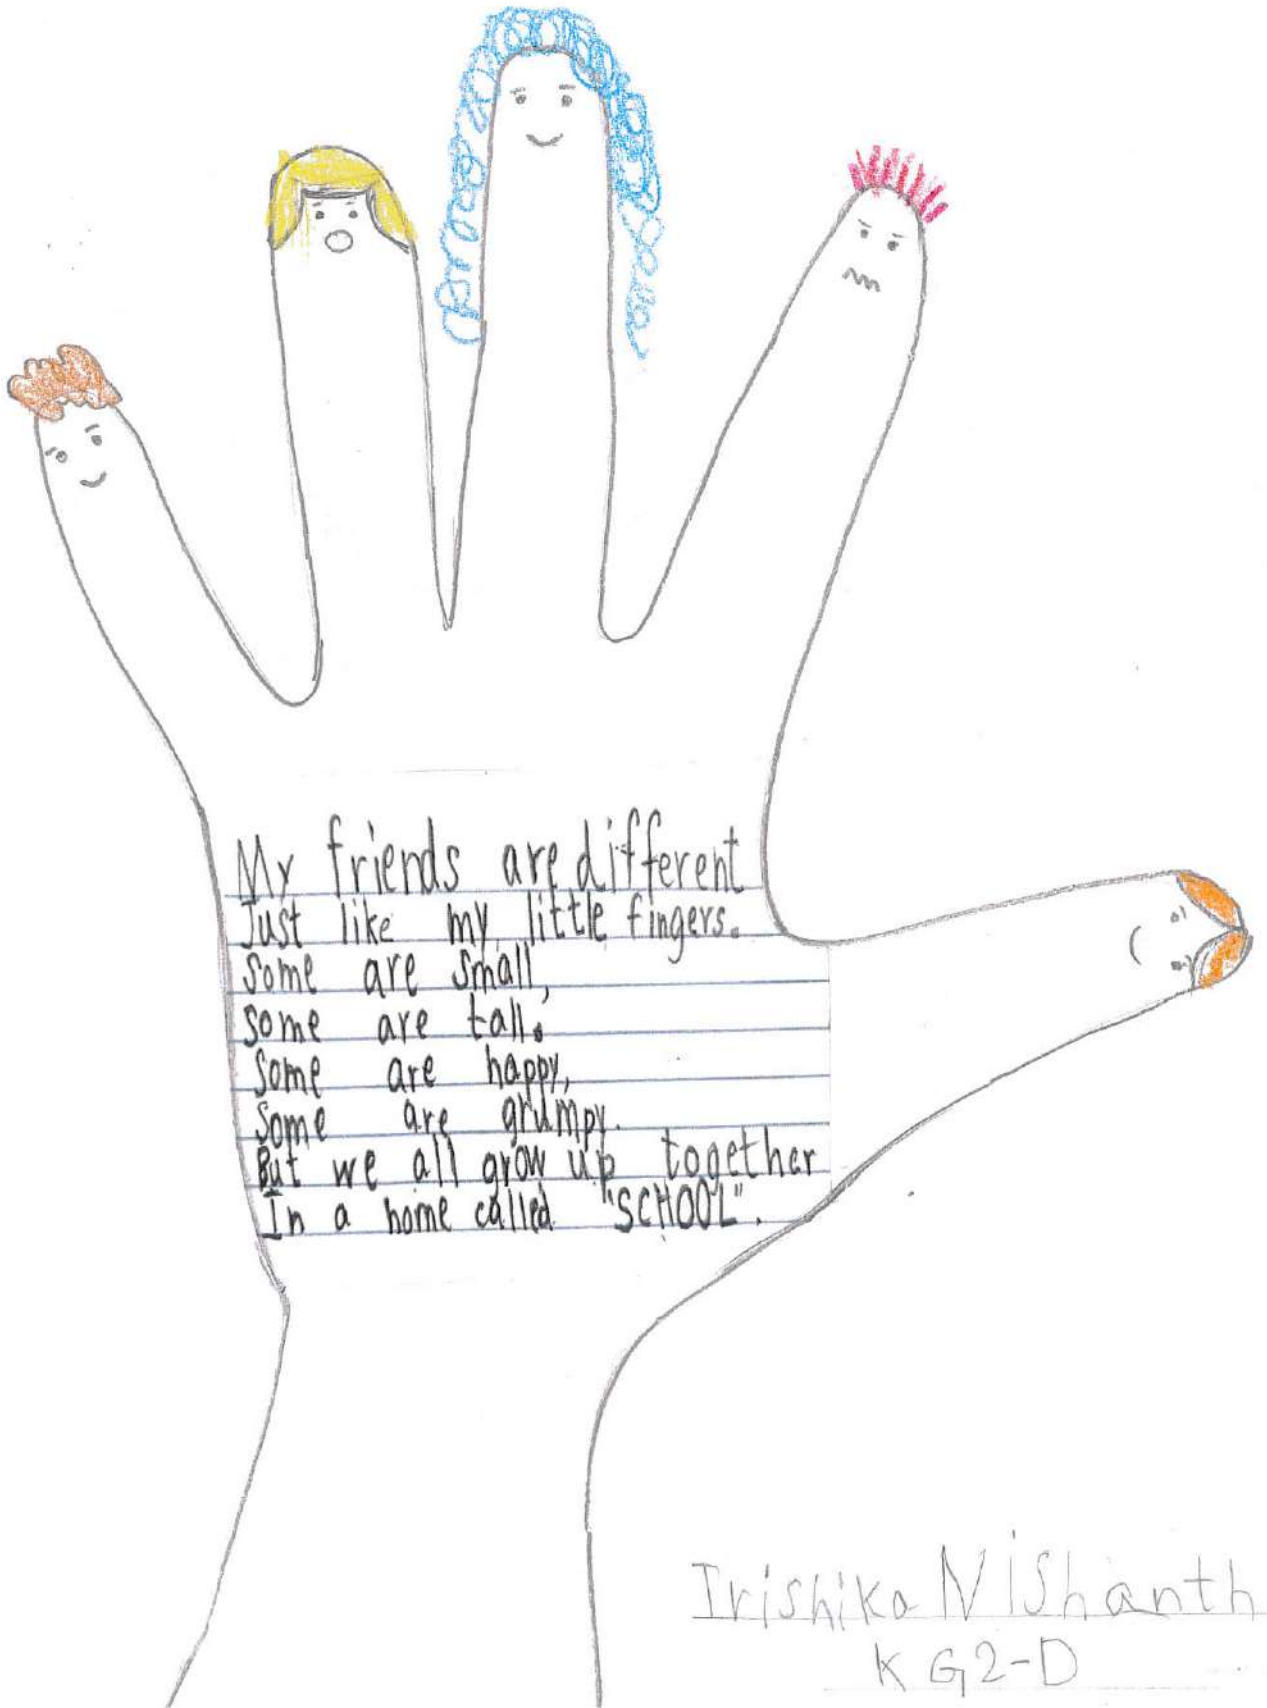 My friends are different
Just like my little fingers.
Some are small,
some are tall.
Some are happy,
Some are grumpy.
But we all grow up together
In a home called "SCHOOL".
Irishika NiShanth
KG2-D